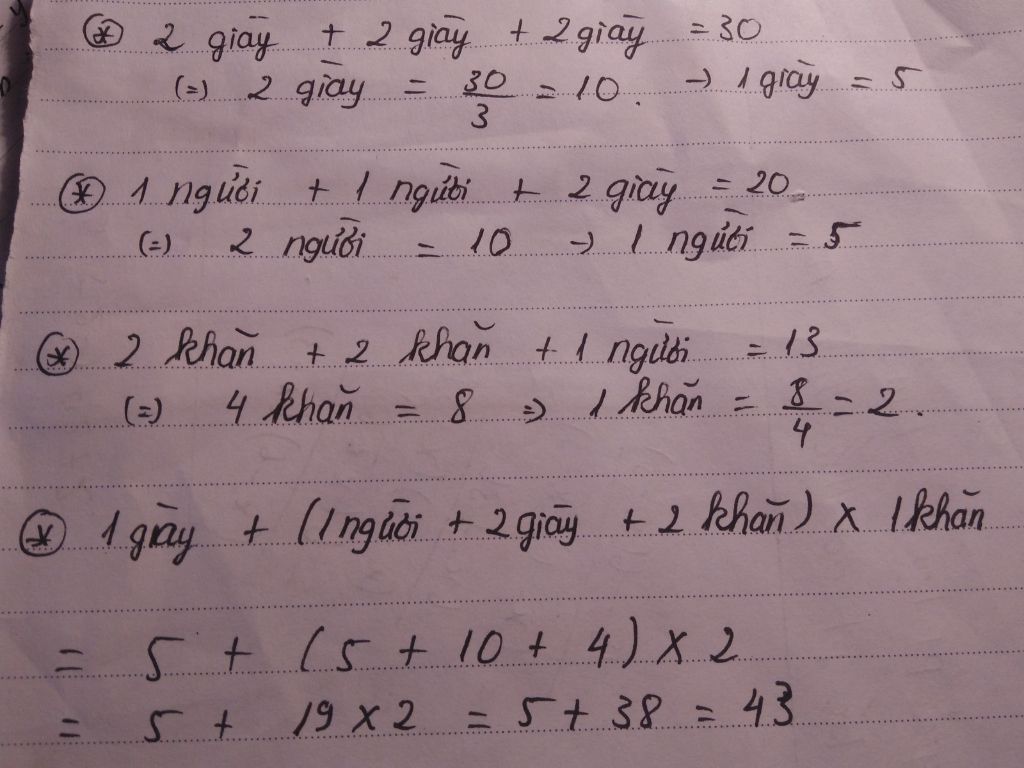 * 2 giày + 2 giày + 2 giày = 30
(=) 2 giày = 30/3 = 10. → 1 giày = 5
* 1 người + 1 người + 2 giày = 20
(=) 2 người = 10 → 1 người = 5
* 2 khăn + 2 khăn + 1 người = 13
(=) 4 khăn = 8 => 1 khăn = 8/4 = 2.
* 1 giày + (1 người + 2 giày + 2 khăn) x 1 khăn
= 5 + (5 + 10 + 4) x 2
= 5 + 19 x 2 = 5 + 38 = 43